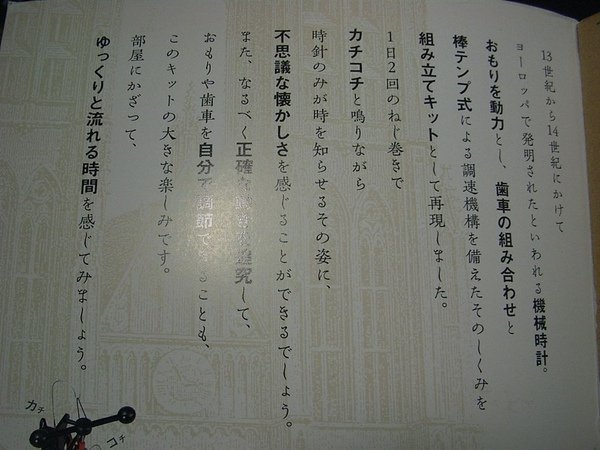 13世紀から14世紀にかけて
ヨーロッパで発明されたといわれる機械時計。
おもりを動力とし、歯車の組み合わせと
棒テンプ式による調速機構を備えたそのしくみを
組み立てキットとして再現しました。
1日2回のねじ巻きで
カチコチと鳴りながら
時針のみが時を知らせるその姿に、
不思議な懐かしさを感じることができるでしょう。
また、なるべく正確な動きを探究して、
おもりや歯車を自分で調節できることも、
このキットの大きな楽しみです。
部屋にかざって、
ゆっくりと流れる時間を感じてみましょう。
カチ
コチ